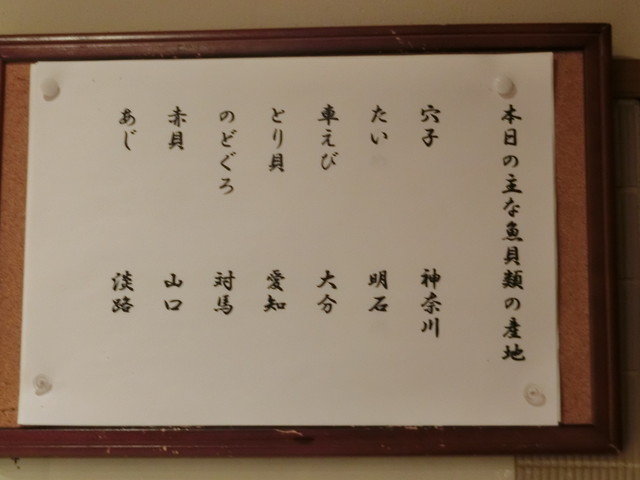 本日の主な魚貝類の産地
穴子 神奈川
たい 明石
車えび 大分
とり貝 愛知
のどぐろ 対馬
赤貝 山口
あじ 淡路